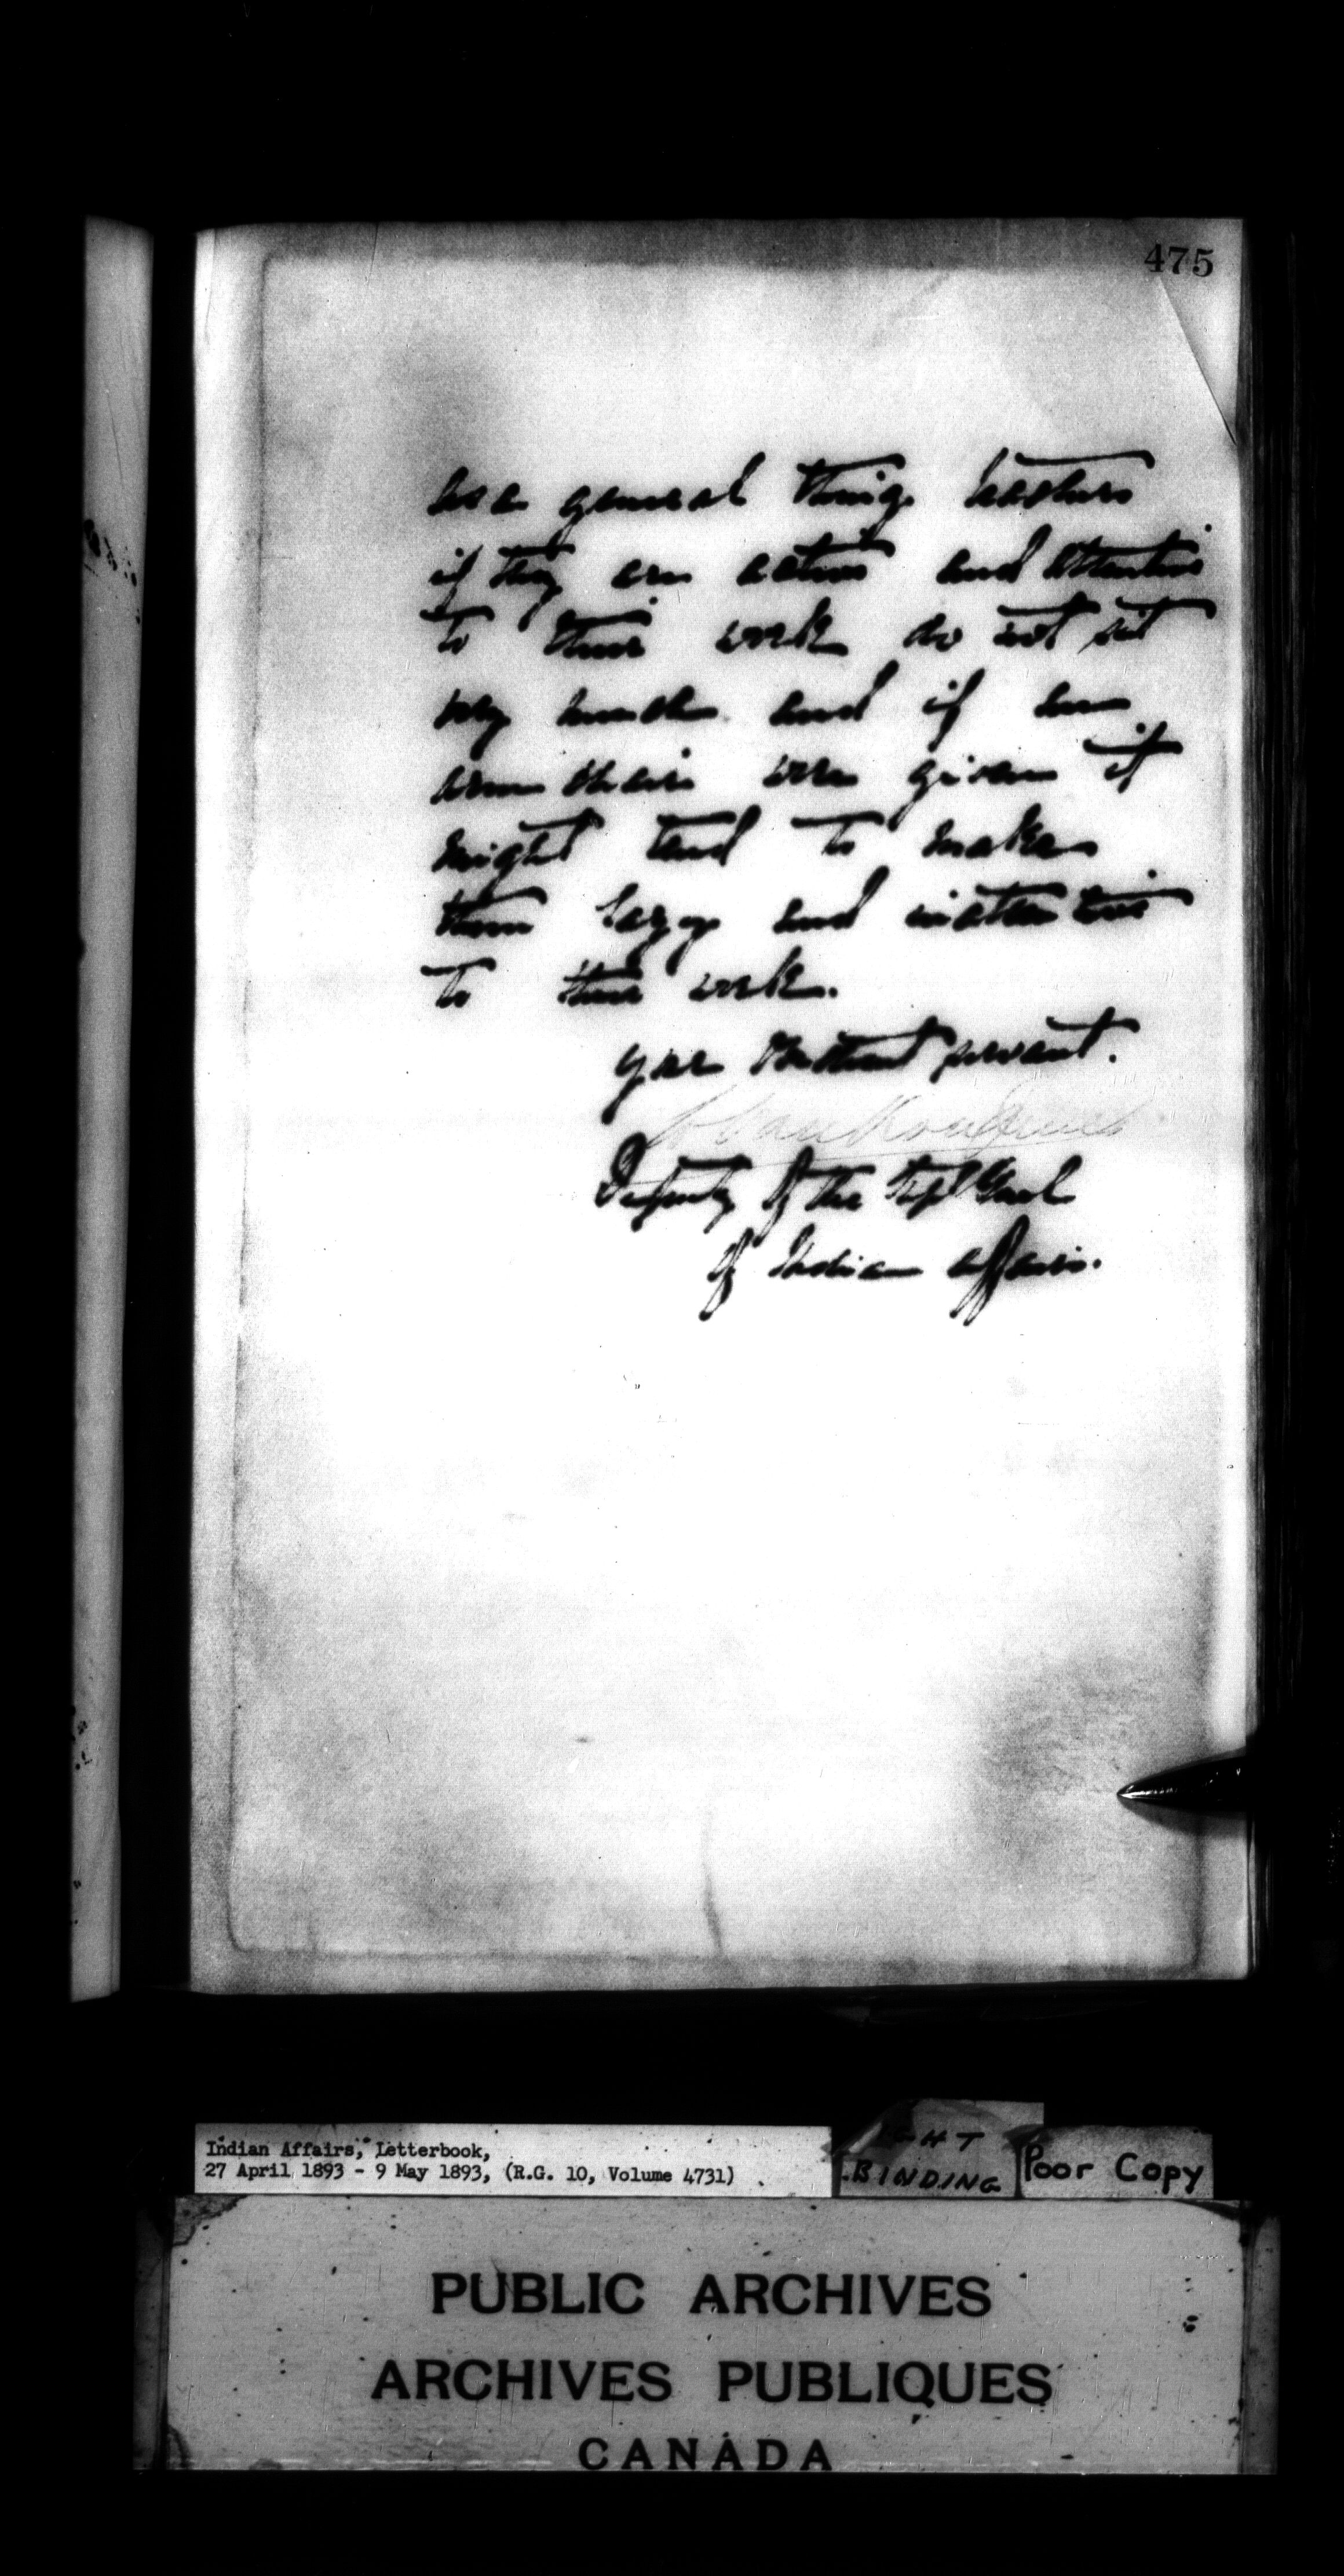 475
As a general thing teachers
if they are active and attentive
to their work do not sit
very much and if an
arm chair were given it
might tend to make
them lazy and inattentive
to their work.
Your obedient servant.
L Vankoughnet
Deputy of the Supt Genl
of Indian Affairs.
Indian Affairs, Letterbook,
27 April 1893 - 9 May 1893, (R.G. 10, Volume 4731)
GHT
BINDING
Poor Copy
PUBLIC ARCHIVES
ARCHIVES PUBLIQUES
CANADA